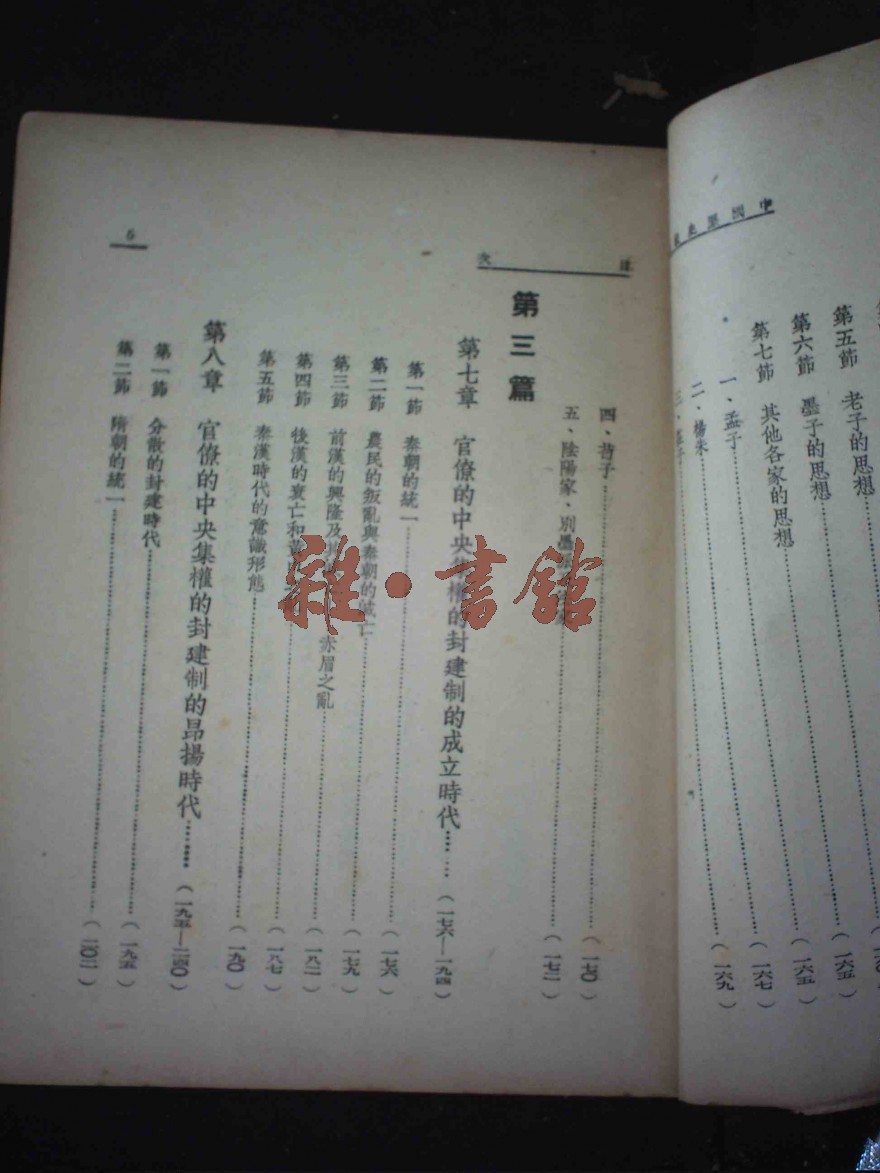 第五節 老子的思想……(一六五)
第六節 墨子的思想……(一六五)
第七節 其他各家的思想……(一六七)
一、孟子
二、楊朱……(一六九)
目次
四、荀子……(一七〇)
五、陰陽家、別墨……(一七二)
第三篇
第七章 官僚的中央集權的封建制的成立時代……(一七六—一九四)
第一節 秦朝的統一……(一七六)
第二節 農民的叛亂與秦朝的滅亡……(一七九)
第三節 前漢的興隆及 赤眉之亂……(一八二)
第四節 後漢的衰亡和黃巾之亂……(一八七)
第五節 秦漢時代的意識形態……(一九〇)
第八章 官僚的中央集權的封建制的昂揚時代……(一九五—二四〇)
第一節 分散的封建時代……(一九五)
第二節 隋朝的統一……(二〇二)
6
雜·書館